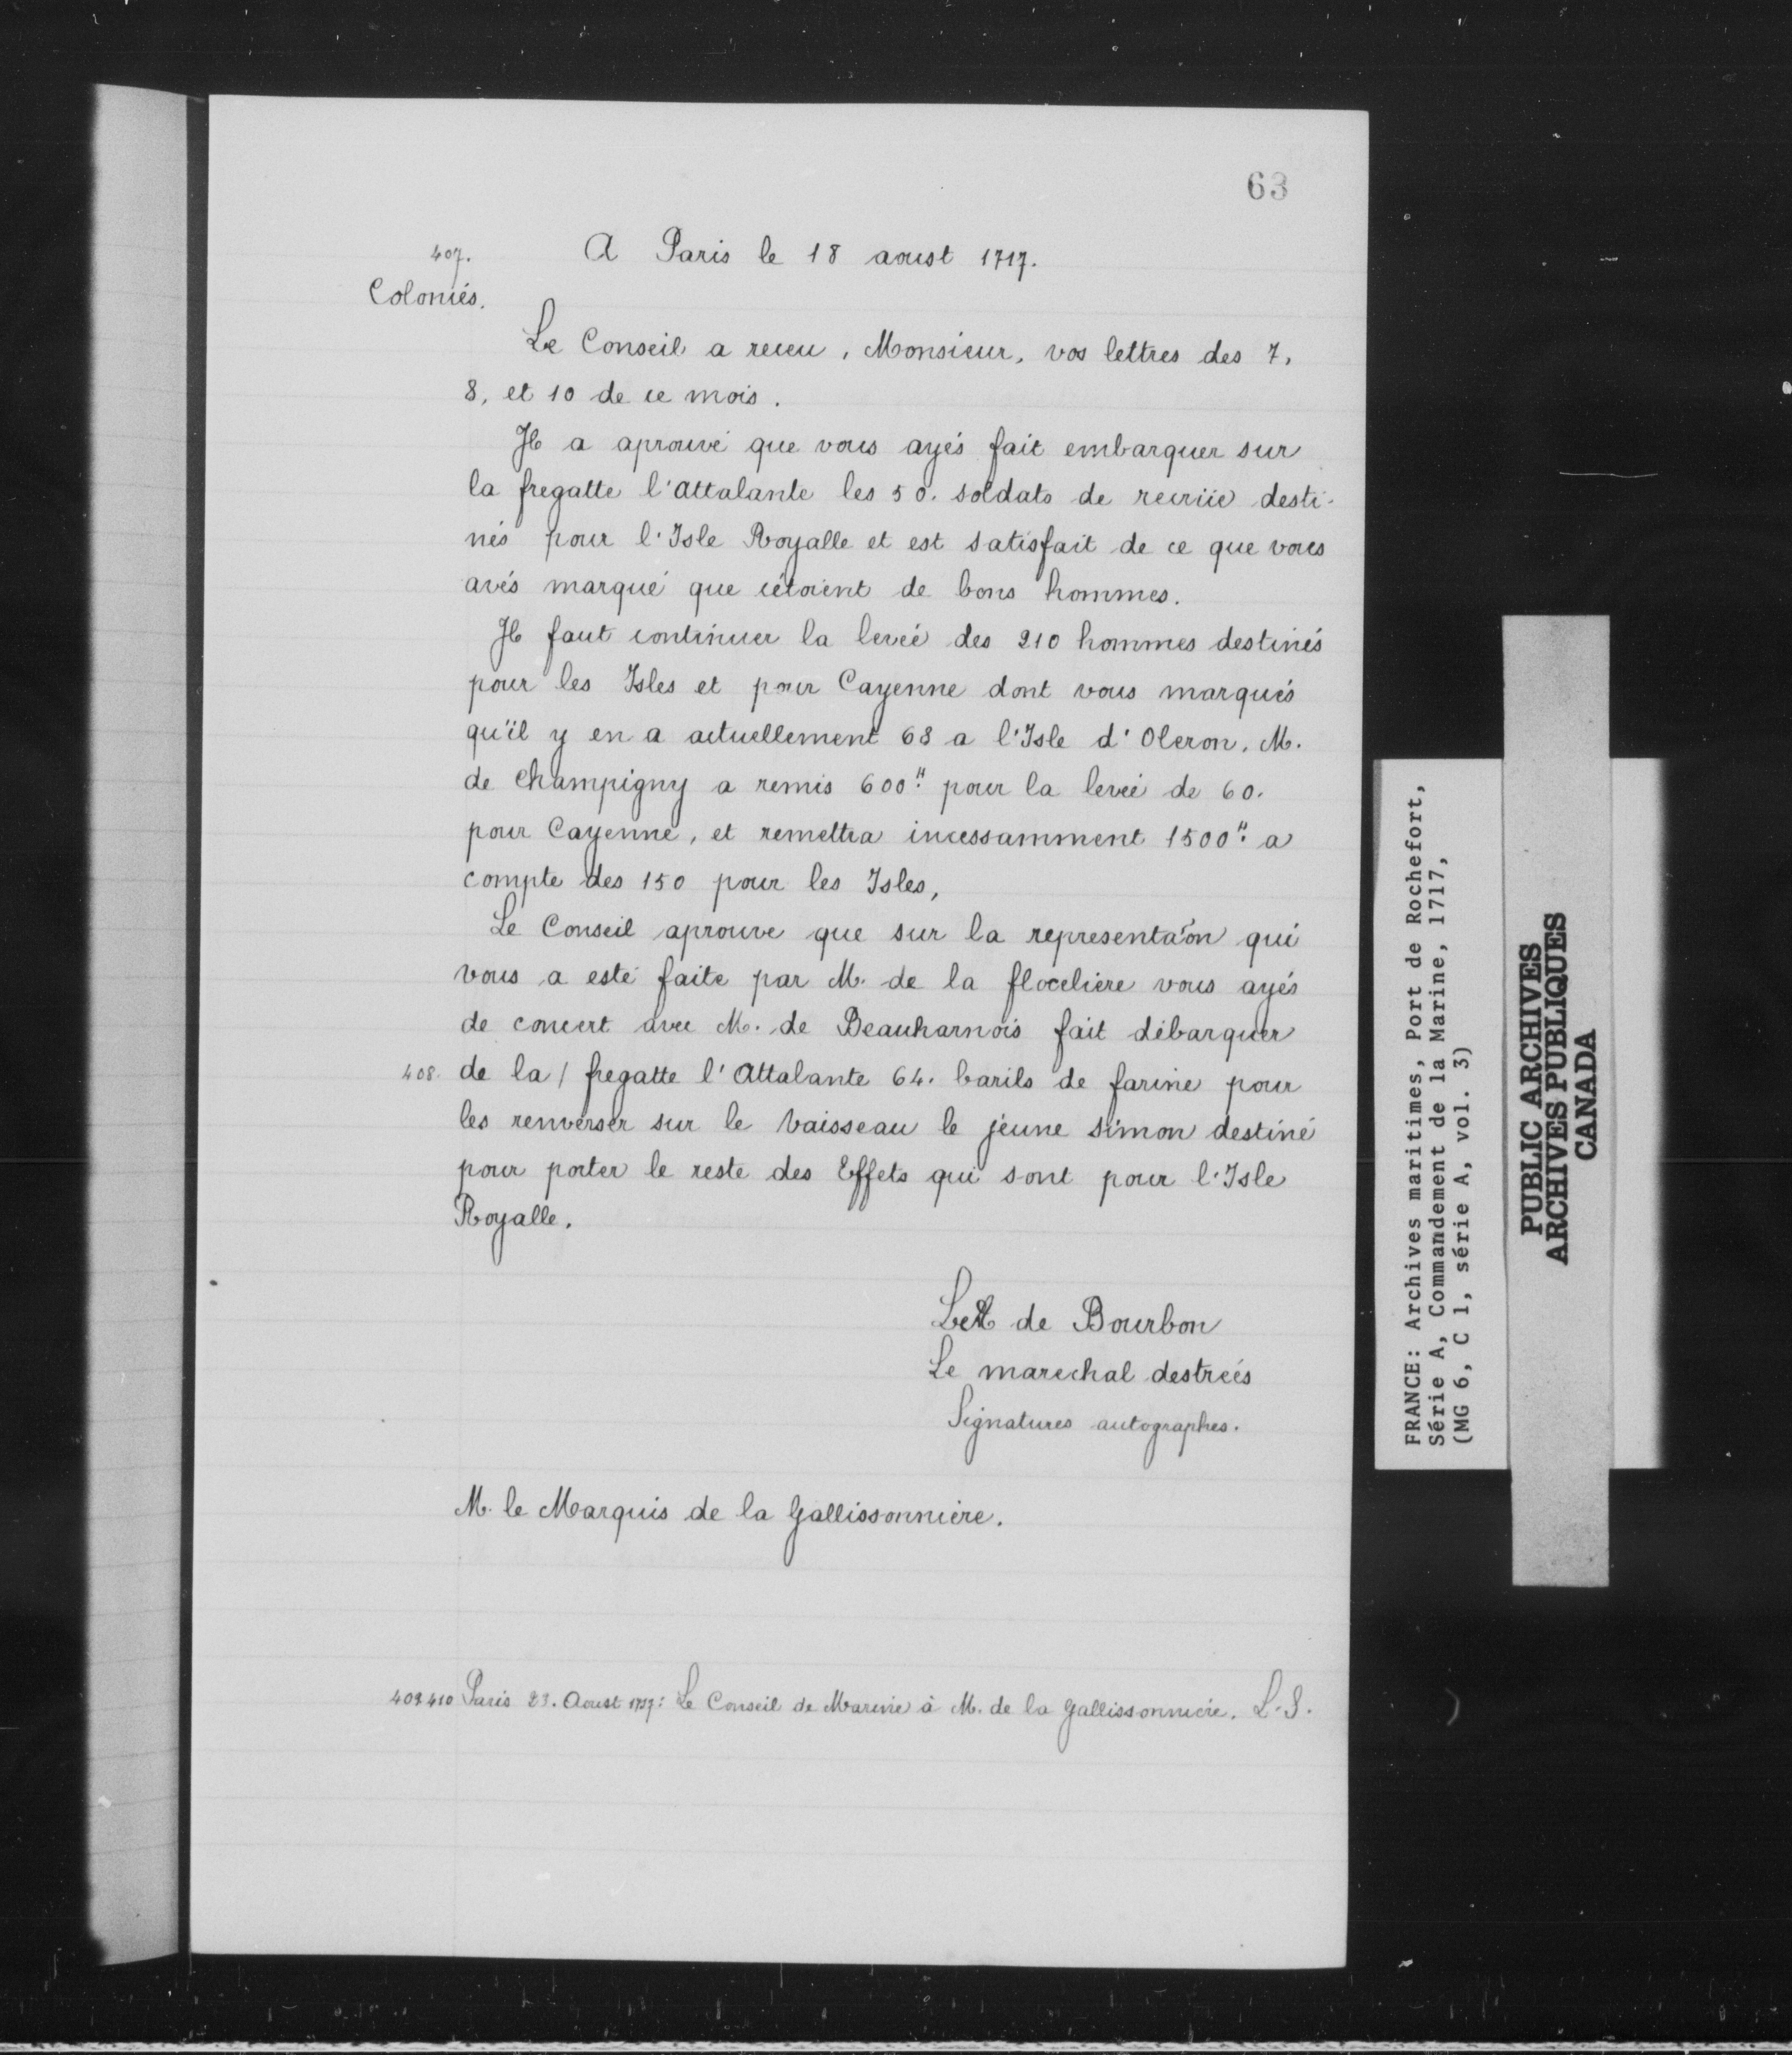 63
407. A Paris le 18 aoust 1717.
Coloniés.
Le Conseil a receu, Monsieur, vos lettres des 7,
8, et 10 de ce mois.
Il a aprouvé que vous ayés fait embarquer sur
la fregatte l'Attalante les 50. soldats de recrüe desti-
nés pour l'Isle Royalle et est satisfait de ce que vous
avés marqué que cétoient de bons hommes.
Il faut continuer la levée des 210 hommes destinés
pour les Isles et pour Cayenne dont vous marqués
qu'il y en a actuellement 68 a l'Isle d'Oleron. M.
de Champigny a remis 600" pour la levée de 60.
pour Cayenne, et remettra incessamment 1500" a
compte des 150 pour les Isles,
Le Conseil aprouve que sur la representa'on qui
vous a esté faite par M. de la floceliere vous ayés
de concert avec M. de Beauharnois fait débarquer
408. de la / fregatte l'Attalante 64. barils de farine pour
les renverser sur le Vaisseau le jeune Simon destiné
pour porter le reste des Effets qui sont pour l'Isle
Royalle.
de Bourbon
Le marechal destréés
Signatures autographes.
M. le Marquis de la Gallissonnière.
409 410 Paris 23. Aoust 1717: Le Conseil de Marine à M. de la Gallissonnière. L.S.
FRANCE: Archives maritimes, Port de Rochefort,
Série A, Commandement de la Marine, 1717,
(MG 6, C 1, série A, vol. 3)
PUBLIC ARCHIVES
ARCHIVES PUBLIQUES
CANADA